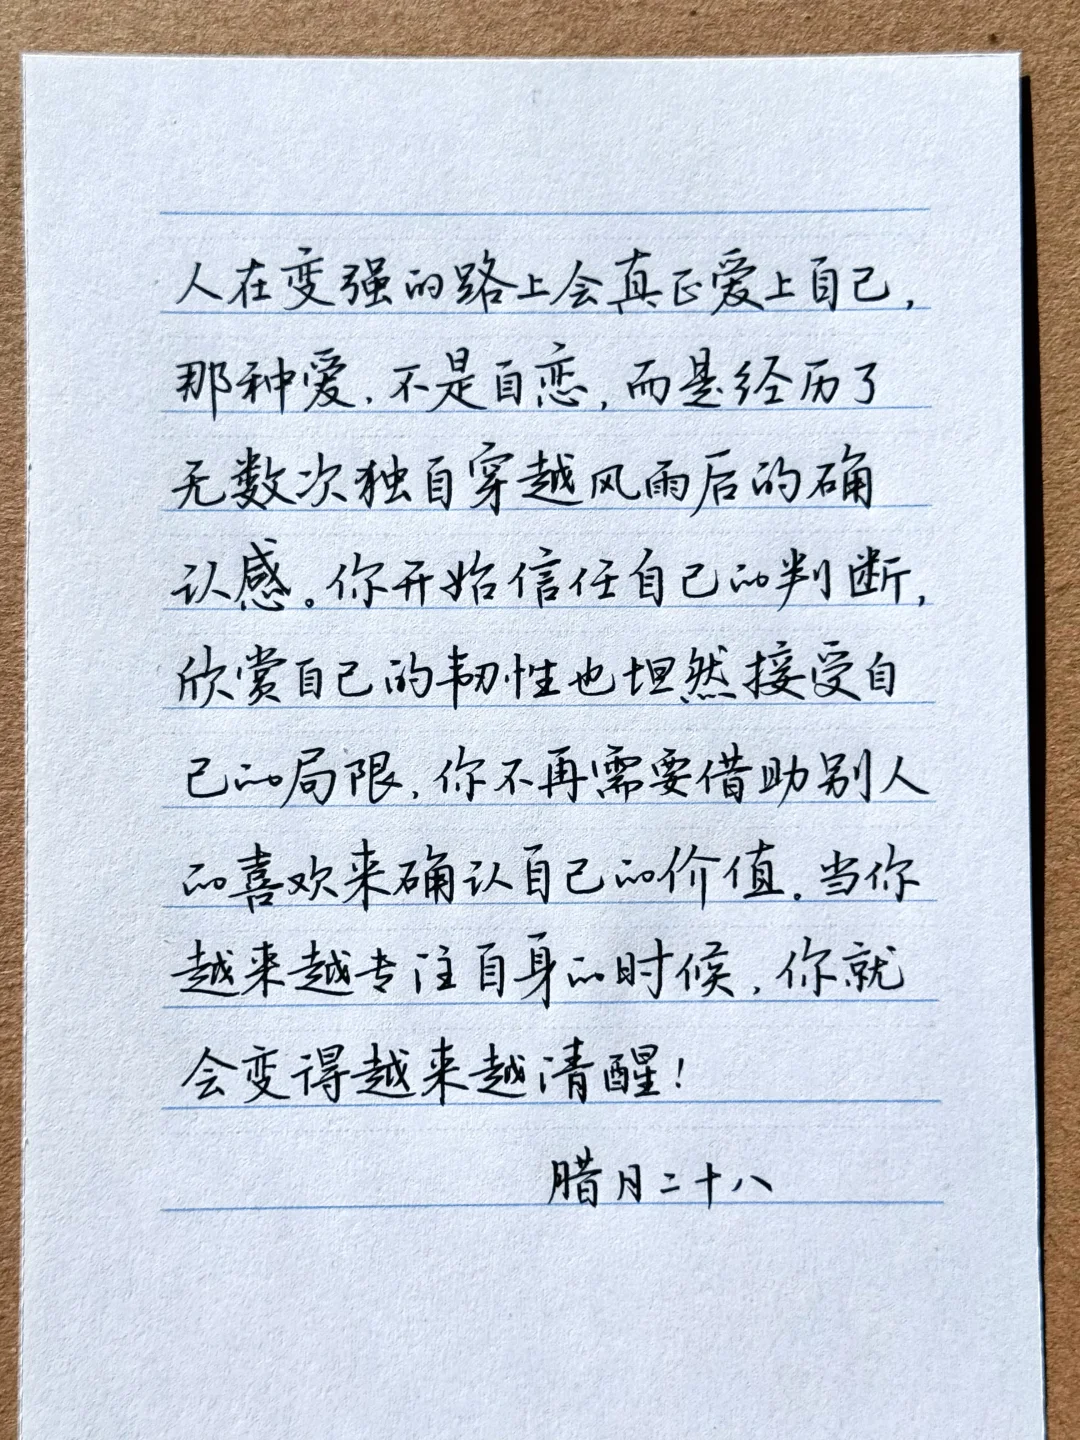 人在变强的路上会真正爱上自己，
那种爱，不是自恋，而是经历了
无数次独自穿越风雨后的确
认感。你开始信任自己的判断，
欣赏自己的韧性也坦然接受自
己的局限，你不再需要借助别人
的喜欢来确认自己的价值。当你
越来越专注自身的时候，你就
会变得越来越清醒！
腊月二十八